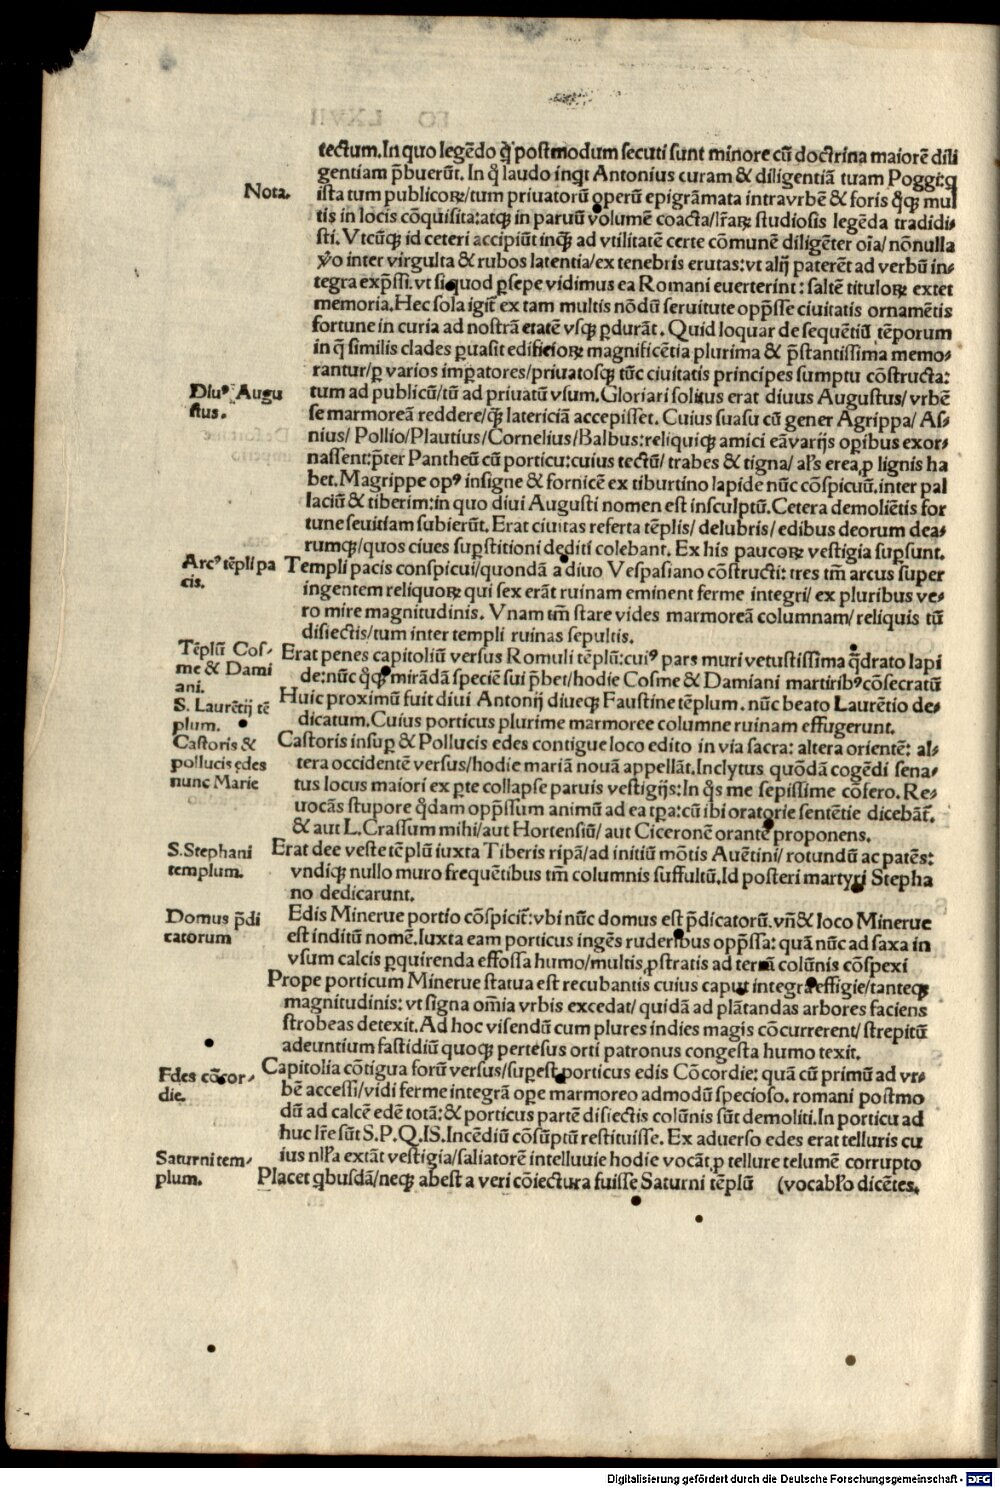 tectum.In quo legēdo q̄ postmodum secuti sunt minore cū doctrina maiorē dili
gentiam p̄buerūt. In q̄ laudo inqt Antonius curam & diligentiā tuam Poggi:q
Nota.
ista tum publicoꝝ/tum priuatorū operū epigrāmata intra vrbē & foris q̄ꝗ mul
tis in locis cōquisita:atqꝫ in paruū volumē coacta/lr̄aꝝ studiosis legēda tradidi⸗
sti. Vtcūqꝫ id ceteri accipiūt inqꝫ ad vtilitatē certe cōmunē diligēter oīa/ nōnulla
ꝟo inter virgulta & rubos latentia/ex tenebris erutas:vt alij paterēt ad verbū in⸗
tegra exp̄ssi.vt siquod ꝑsepe vidimus ea Romani euerterint: saltē tituloꝝ extet
memoria.Hec sola igit̄ ex tam multis nōdū seruitute opp̄sse ciuitatis ornamētis
fortune in curia ad nostrā etatē vsqꝫ ꝑdurāt. Quid loquar de sequētiū tēporum
in q̄ similis clades ꝑuasit edificioꝝ magnificētia plurima & p̄stantissima memo⸗
rantur/ꝑ varios imꝑatores/priuatosqꝫ tūc ciuitatis principes sumptu cōstructa:
Diuꝰ Augu
stus.
tum ad publicū/tū ad priuatū vsum.Gloriari solitus erat diuus Augustus/ vrbē
se marmoreā reddere/qꝫ latericiā accepisset. Cuius suasu cū gener Agrippa/ As⸗
nius/ Pollio/Plautius/Cornelius/Balbus:reliquiqꝫ amici eā varijs opibus exor⸗
nassent:p̄ter Pantheū cū porticu:cuius tectū/ trabes & tigna/ al's erea ꝓ lignis ha
bet.Magrippe opꝰ insigne & fornicē ex tiburtino lapide nūc cōspicuū.inter pal
laciū & tiberim:in quo diui Augusti nomen est insculptū.Cetera demoliētis for
tune seuitiam subierūt. Erat ciuitas referta tēplis/ delubris/ edibus deorum dea⸗
rumqꝫ/quos ciues suꝑstitioni dediti colebant. Ex his paucoꝝ vestigia suꝑsunt.
Arcꝰ tēpli pa
cis.
Templi pacis conspicui/quondā a diuo Vespasiano cōstructi: tres tm̄ arcus super
ingentem reliquoꝝ qui sex erāt ruinam eminent ferme integri/ ex pluribus ve⸗
ro mire magnitudinis. Vnam tm̄ stare vides marmoreā columnam/ reliquis tū
disiectis/tum inter templi ruinas sepultis.
Tēplū Cos⸗
me & Dami
ani.
Erat penes capitoliū versus Romuli tēplū:cuiꝰ pars muri vetustissima q̄drato lapi
de:nūc q̄qꝫ mirādā speciē sui p̄bet/hodie Cosme & Damiani martiribꝰ cōsecratū
S. Laurētij tē
plum.
Huic proximū fuit diui Antonij diueqꝫ Faustine tēplum. nūc beato Laurētio de⸗
dicatum.Cuius porticus plurime marmoree columne ruinam effugerunt.
Castoris &
pollucis edes
nunc Marie
Castoris insuꝑ & Pollucis edes contigue loco edito in via sacra: altera orientē: al⸗
tera occidentē versus/hodie mariā nouā appellāt.Inclytus quōdā cogēdi sena⸗
tus locus maiori ex ꝑte collapse paruis vestigijs:In q̄s me sepissime cōfero. Re⸗
uocās stupore q̄dam opp̄ssum animū ad ea tꝑa:cū ibi oratorie sentētie dicebāt̄.
& aut L.Crassum mihi/aut Hortensiū/ aut Ciceronē orantē proponens.
S.Stephani
templum.
Erat dee veste tēplū iuxta Tiberis ripā/ad initiū mōtis Auētini/ rotundū ac patēs:
vndiqꝫ nullo muro frequētibus tm̄ columnis suffultū.Id posteri martyri Stepha
no dedicarunt.
Domus p̄di
catorum
Edis Minerue portio cōspicit̄:vbi nūc domus est p̄dicatorū.vn̄ & loco Minerue
est inditū nomē.Iuxta eam porticus ingēs ruderibus opp̄ssa: quā nūc ad saxa in
vsum calcis ꝑquirenda effossa humo/multis ꝓstratis ad terrā colūnis cōspexi
Prope porticum Minerue statua est recubantis cuius caput integra effigie/tanteqꝫ
magnitudinis: vt signa om̄ia vrbis excedat/ quidā ad plātandas arbores faciens
strobeas detexit. Ad hoc visendū cum plures indies magis cōcurrerent/ strepitū
adeuntium fastidiū quoqꝫ pertesus orti patronus congesta humo texit.
Edes cōcor⸗
die.
Capitolia cōtigua forū versus/suꝑest porticus edis Cōcordie: quā cū primū ad vr⸗
bē accessi/vidi ferme integrā oꝑe marmoreo admodū specioso. romani postmo
dū ad calcē edē totā:& porticus partē disiectis colūnis sūt demoliti.In porticu ad
huc lr̄e sūt S.P.Q.IS.Incēdiū cōsūptū restituisse. Ex aduerso edes erat telluris cu
ius nl'la extāt vestigia/saliatorē intelluuie hodie vocāt ꝓ tellure telumē corrupto
Saturni tem⸗
plum.
Placet qbusdā/neqꝫ abest a veri cōiectura fuisse Saturni tēplū (vocabl'o dicētes.
Digitalisierung gefördert durch die Deutsche Forschungsgemeinschaft - DFG